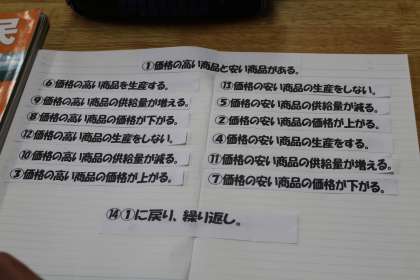 民
①価格の高い商品と安い商品がある。
⑥価格の高い商品を生産する。
⑨価格の高い商品の供給量が増える。
⑧価格の高い商品の価格が下がる。
⑫価格の高い商品の生産をしない。
⑩価格の高い商品の供給量が減る。
③価格の高い商品の価格が上がる。
⑬価格の安い商品の生産をしない。
⑤価格の安い商品の供給量が減る。
②価格の安い商品の価格が上がる。
④価格の安い商品の生産をする。
⑪価格の安い商品の供給量が増える。
⑦価格の安い商品の価格が下がる。
⑭①に戻り、繰り返し。